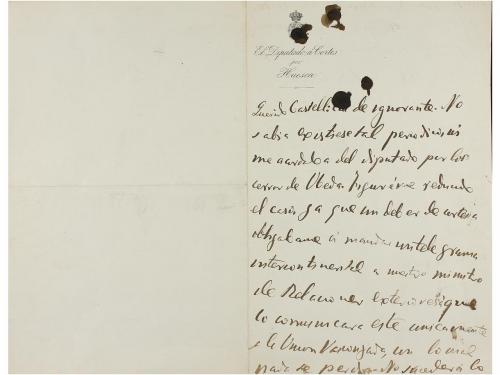 El Diputado á Cortes
por
Huesca
Querido de ignorante. No
sabia existiese tal periodico ni
me acordaba del diputado por los
cerros de Ubeda. reducido
el caso ya que un deber de cortesia
obligabame á mandar un telegrama
intercontinental a nuestro ministro
de Relaciones exteriores que
lo comunicara este unicamente
a la Union Vascongada, con lo cual
nada se perdia. No sucederá lo